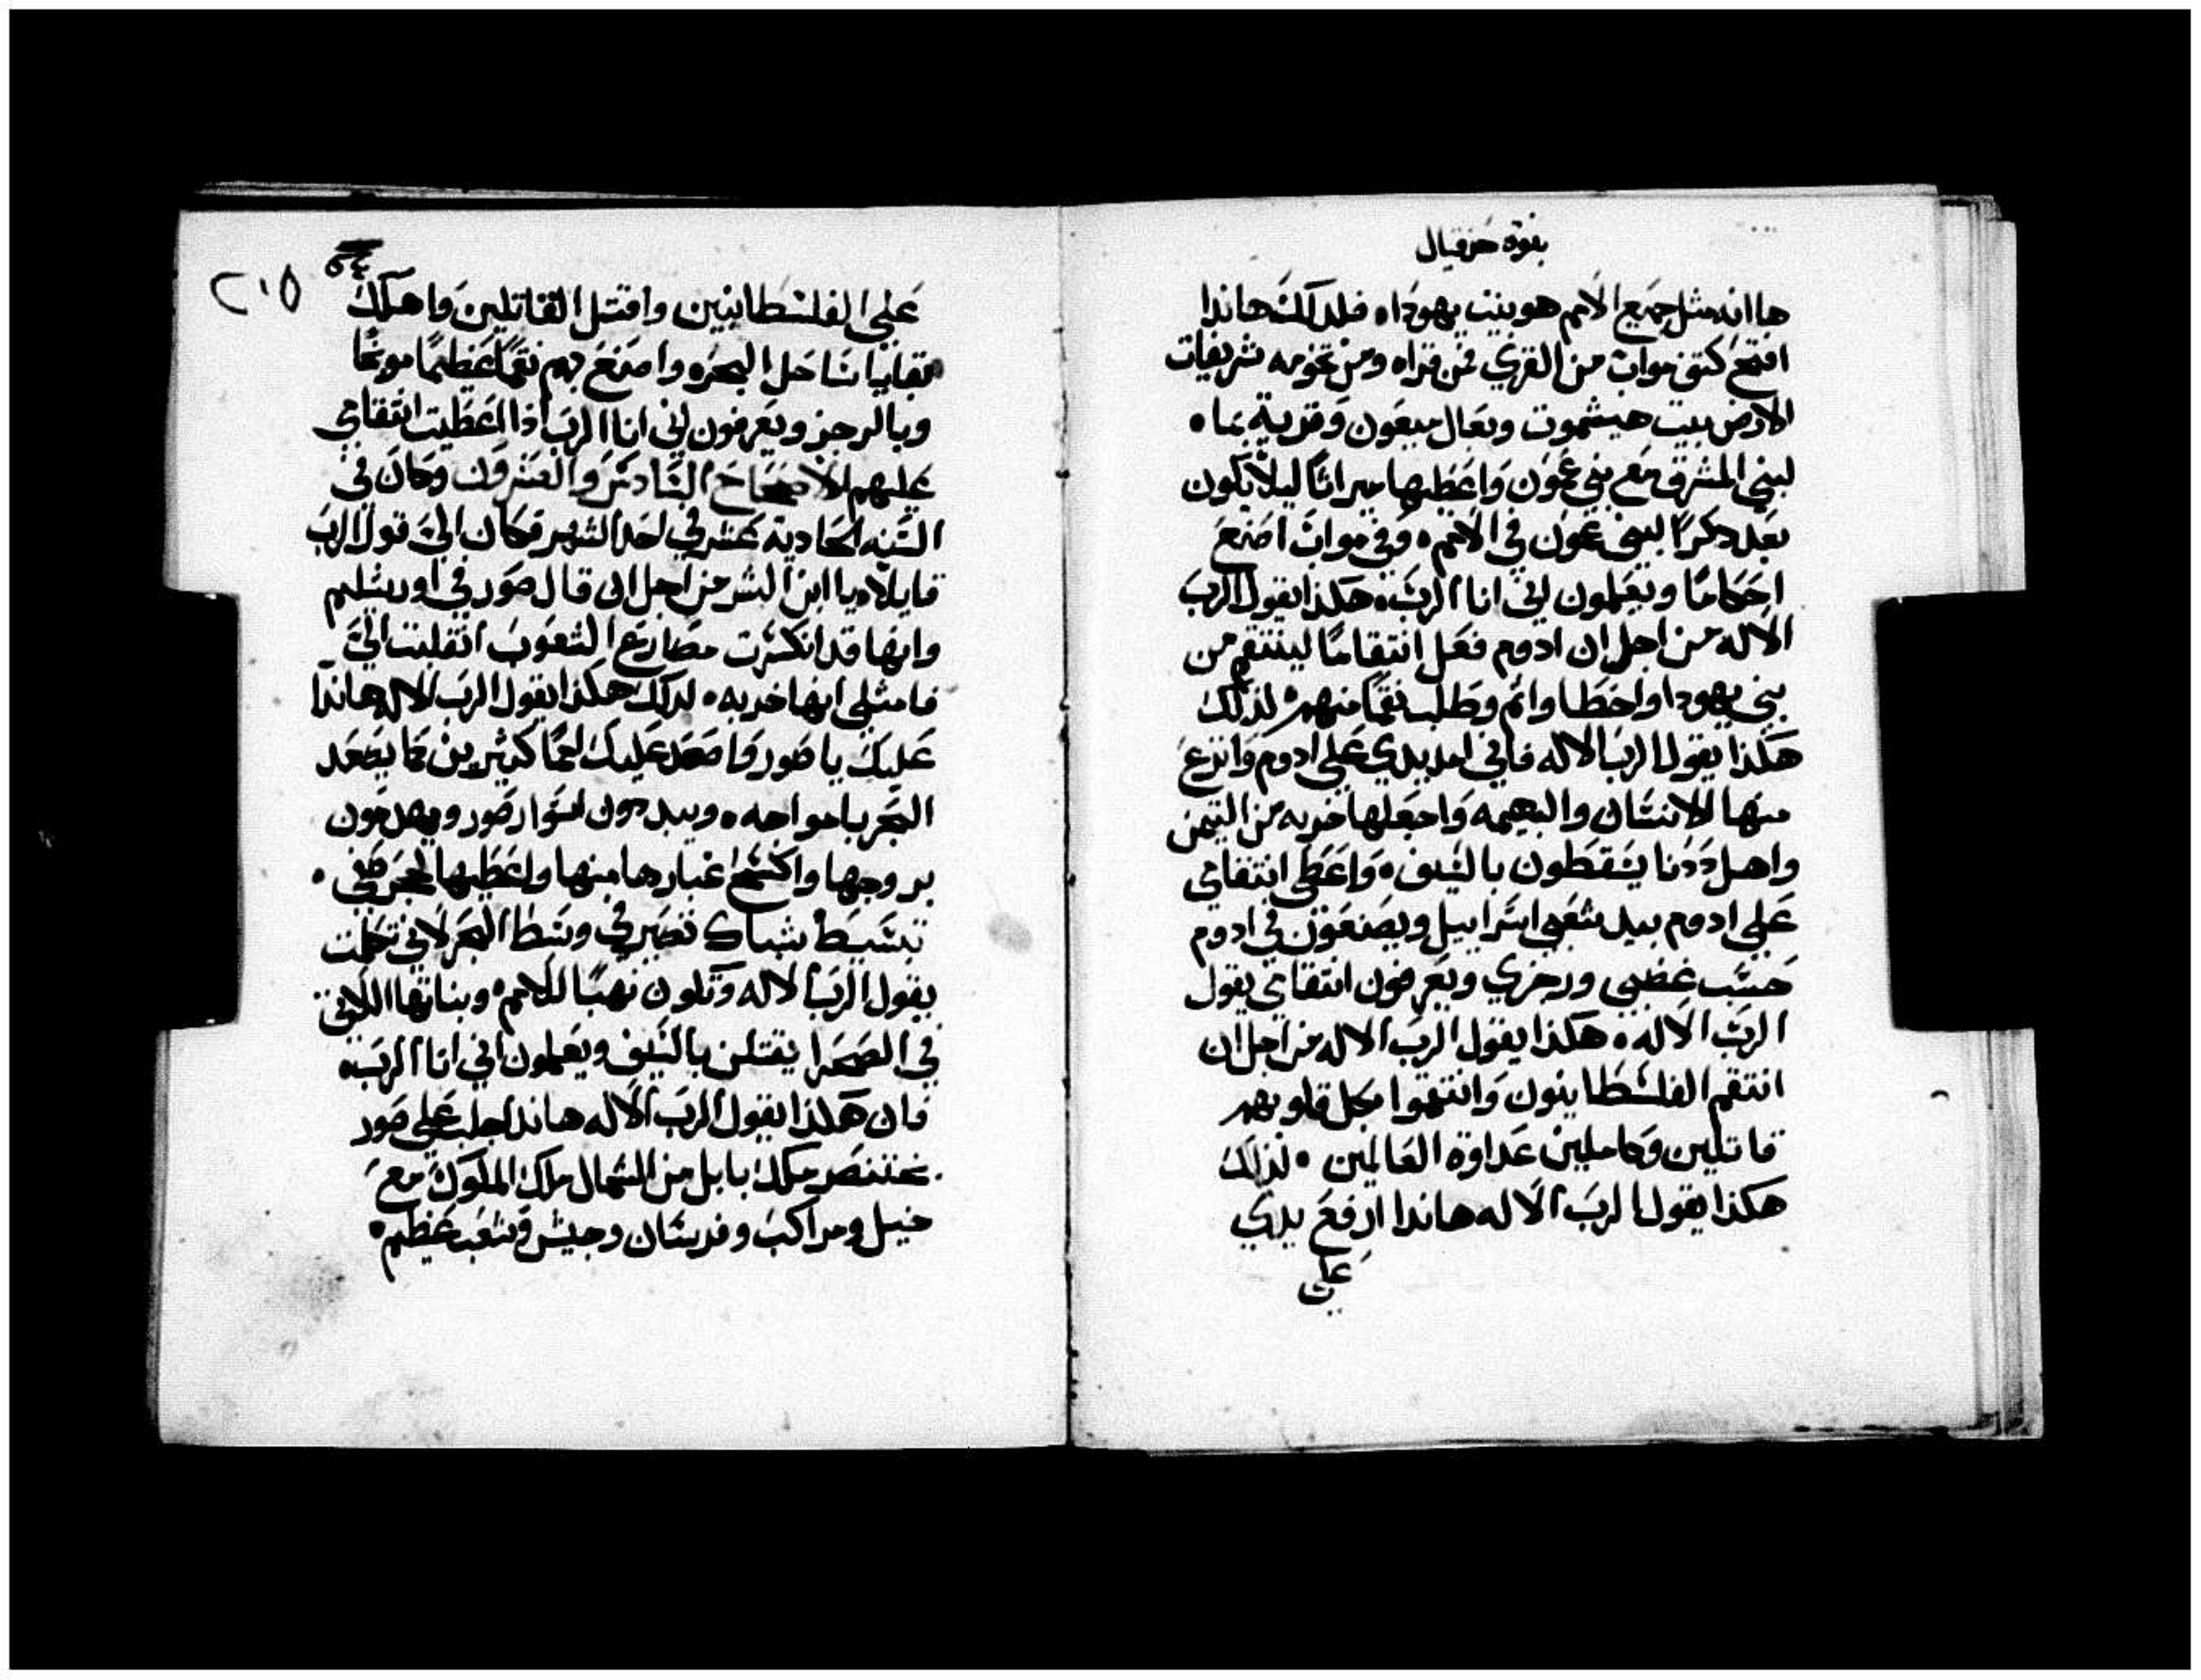 نبوة حزقيال
ها انه مثل جميع الامم هو بيت يهودا. فلدلك هاندا
افتح كتف مواب من القري من قراه ومن تخومه شريفات
الارض بيت هيشموت وبعال ميعون وقرية يما.
لبني المشرق مع بني عمون واعطيها ميراثا ليلا يكون
بعد دكرا لبني عمون في الامم. وفي مواب اصنع
احكاما ويعلمون اني انا الرب. هكذا يقول الرب
الاله من اجل ان ادوم فعل انتقاما لينتقم من
بني يهودا واخطا واثم وطلب نقما منهم. لذلك
هكذا يقول الرب الاله فاني امد يدي علي ادوم وانزع
منها الانسان والبهيمه واجعلها خربه من التيمن
واهل ددنا يسقطون بالسيف. واعطي انتقامي
علي ادوم بيد شعبي اسراييل ويصنعون في ادوم
حسب غضبي ورجزي ويعرفون انتقامي يقول
الرب الاله. هكذا يقول الرب الاله من اجل ان
انتقم الفلسطاينون وانتقموا بكل قلوبهم
قاتلين وكاملين عداوة العالمين. لذلك
هكذا يقول الرب الاله هاندا ارفع يدي
علي
٢١٥
علي الفلسطانيين واقتل القتالين واهلك
بقايا ساحل البحر. واصنع بهم نقما عظيما موبخا
وبالرجز ويعرفون اني انا الرب اذا اعطيت انتقامي
عليهم الاصحاح السادس والعشرون وكان في
السنه الحادية عشر في احد الشهر فكان الي قول الرب
قايلا. يا ابن البشر من اجل ان قال صور في اورشليم
وانها قد انكسرت مصاريع الشعوب انقلبت الي
فامتلي انها خربه. لدلك هكذا يقول الرب الاله هاندا
عليك يا صور واصعد عليك امما كثيرين كما يصعد
البحر بامواجه. ويبددون اسوار صور ويهدمون
بروجها واكسح غبارها منها واعطيها لحجر صفي.
تبسيط شباك تصير في وسط البحر لاني تكلمت
يقول الرب الاله وتكون نهبا للامم. وبناتها اللاتي
في الصحرا يقتلن بالسيف ويعلمون اني انا الرب.
فان هكذا يقول الرب الاله هاندا اجلب علي صور
بختنصر ملك بابل من الشمال ملك الملوك مع
خيل ومراكب وفرسان وجيش وشعب عظيم.